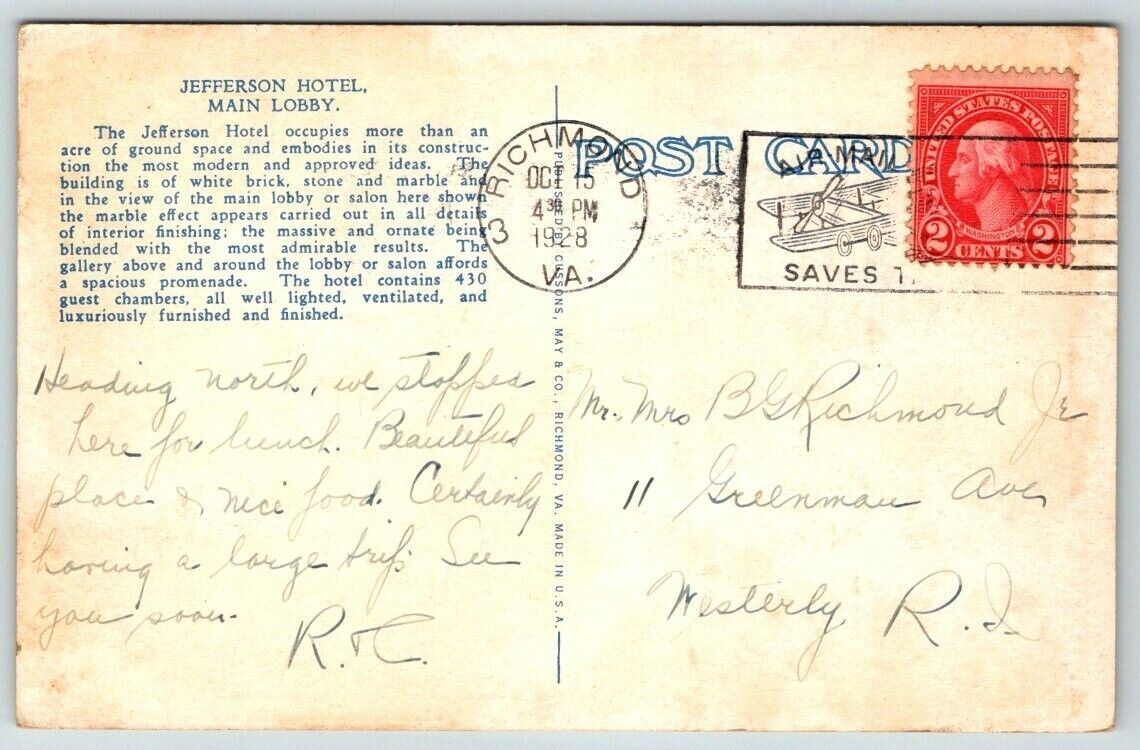 JEFFERSON HOTEL,
MAIN LOBBY.
The Jefferson Hotel occupies more than an
acre of ground space and embodies in its construc-
tion the most modern and approved ideas. The
building is of white brick, stone and marble and
in the view of the main lobby or salon here shown
the marble effect appears carried out in all details
of interior finishing; the massive and ornate being
blended with the most admirable results. The
gallery above and around the lobby or salon affords
a spacious promenade. The hotel contains 430
guest chambers, all well lighted, ventilated, and
luxuriously furnished and finished.
Heading north, we stopped
here for lunch. Beautiful
place & nice food. Certainly
having a large trip. See
you soon.
R. & C.
PUBLISHED BY CUSSONS, MAY & CO., RICHMOND, VA. MADE IN U.S.A.
POST CARD
RICHMOND
OCT 15
4 30 PM
1928
VA.
3
AIR MAIL
SAVES T
UNITED STATES POSTAGE
WASHINGTON
2 CENTS 2
Mr. Mrs B G Richmond Jr
11 Greenman Ave
Westerly R.I.